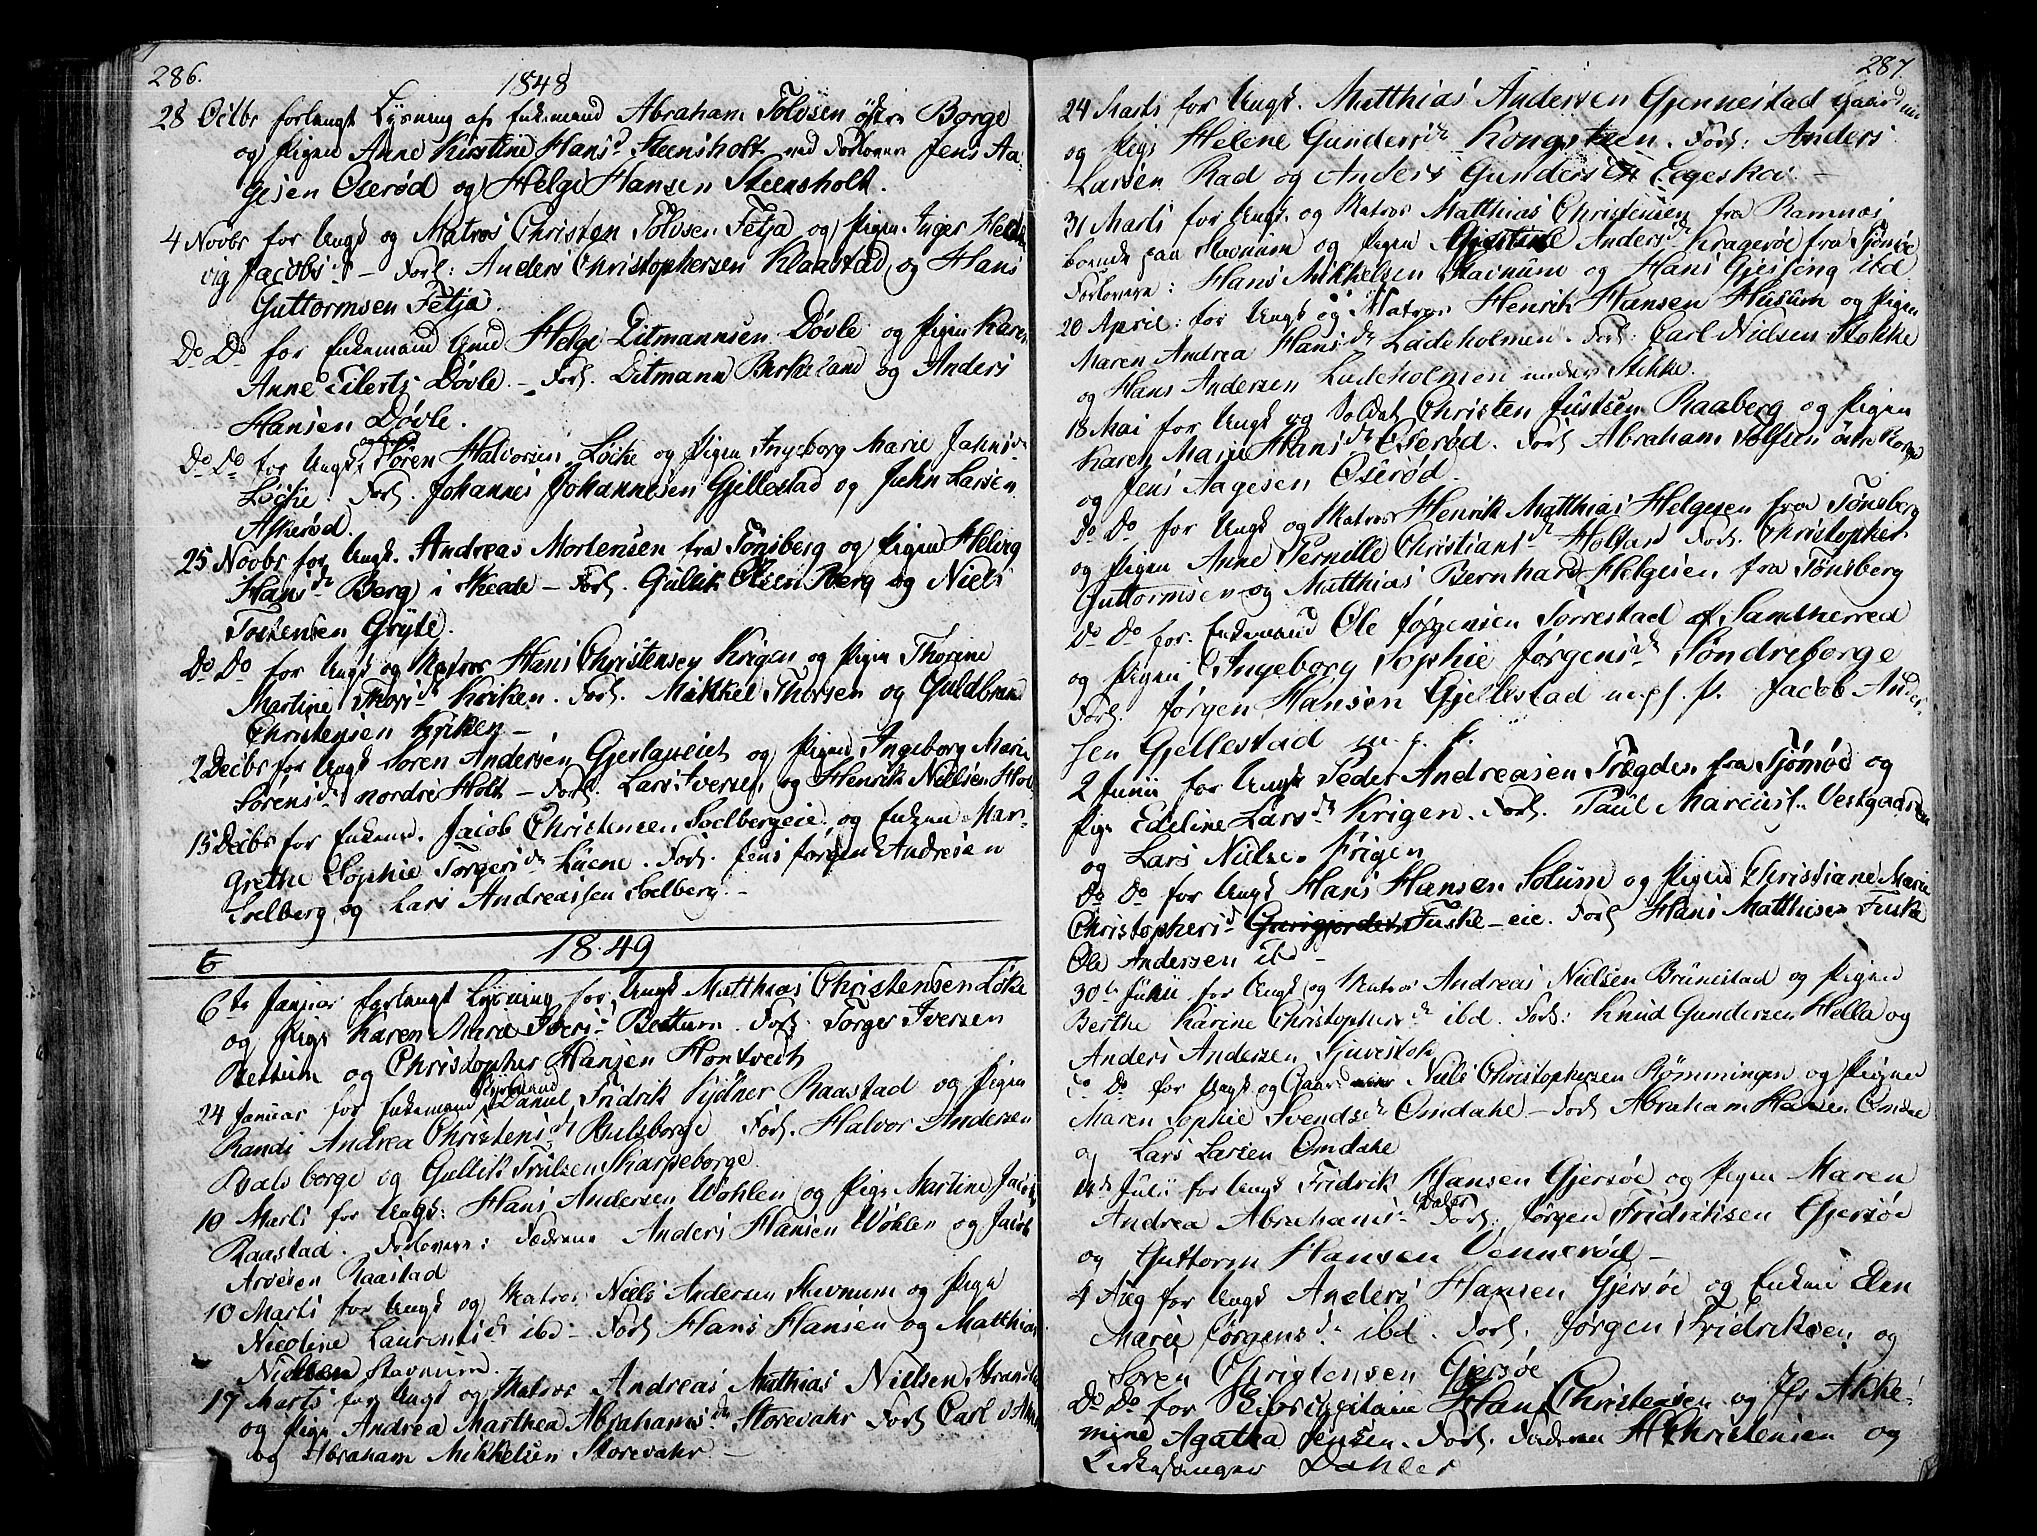 286.
1848
28 Octbr forlangt Lysning af Enkemand Abraham Tolvsen østre Borge
og Pigen Anne Kirstine Hansd. Steensholt ved Forlovere Jens Aa-
gesen Oserød og Helge Hansen Steensholt.
4 Novbr for Ungk og Matros Christen Tolvsen Fetja og Pigen Inger Hed
vig Jacobsd. – Forl: Anders Christophersen Klaastad og Hans
Guttormsen Fetja.
Do Do for Enkemand Helge Ditmannsen Døvle og Pigen Karen
Anne Eilertsd Døvle – Forl. Ditmann Berkeland og Anders
Hansen Døvle.
Do Do for Ungk Søren Halvorsen Løcke og Pigen Ingeborg Marie Jahnsd
Løcke. Forl. Johannes Johannesen Gjellestad og Jahn Larsen
Askerød.
25 Novbr for Ungk. Andreas Mortensen fra Tønsberg og Pigen Helvig
Hansd Berg i Skeade – Forl. Gullik Olsen Berg og Niels
Torstensen Gryte.
Do Do for Ungk og Matros Hans Christensen Krigen og Pigen Thorine
Martine Thorsd. Kriken. Forl. Mikkel Thorsen og Guldbrand
Christensen Kriken –
2 Decbr for Ungk Søren Andersen Gjerlaueiet og Pigen Ingeborg Marie
Sørensd. nordre Holt – Forl. Lars Iversen og Henrik Nielsen Holt
15 Decbr for Enkemd. Jacob Christensen Soelbergeie og Enken Mar-
grethe Sophie Torgersd. Luene. Forl. Jens Jørgen Andresen
Soelberg og Lars Andreassen Soelberg. –
1849
6te Januar forlangt Lysning for Ungk Matthias Christensen Løke
og Pige Karen Marie Iversd Bettum. Forl. Torger Iversen
Bettum og Christopher Hansen Hontvedt
24 Januar for Enkemand Daniel Fridrik Sydner Raastad og Pigen
Randi Andrea Christensd. Bulsborge Forl. Halvor Andersen
Bælsborge og Gullik Trulsen Skarpeborge.
10 Marts for Ungk: Hans Andersen Wøhlen og Pige Martine Jacobsd
Raastad. Forlovere: Fædrene Anders Hansen Wøhlen og Jacob
Arvesen Raastad
10 Marts for Ungk og Matros Niels Andersen Stavnum og Pige
Nicoline Laurentsd ibd – Forl Hans Hansen og Matthias
Nielsen Stavnum.
17 Marts for Ungk og Matros Andreas Matthias Nielsen
og Pige Andrea Marthea Abrahamsd. Storevahr Forl Carl
og Abraham Mikkelsen Storevahr –
287
24 Marts for Ungk. Matthias Andersen Gjennestad Gaardmd
og Pige Helene Gundersd. Kongsteen. Forl: Anders
Larsen Rad og Anders Gundersen Eegeskov –
31 Marts for Ungk og Matros Matthias Christensen fra Ramnæs
boende paa Stavnum og Pigen Andersd Kragerøe fra Tjømøe
Forlovere: Hans Mikkelsen Stavnum og Hans Gjessing ibd
20 April: for Ungk og Matros Henrik Hansen Husum og Pigen
Maren Andrea Hansd Ladeholmen. Forl: Carl Nielsen Stokke
og Hans Andersen Ladeholmen under Stokke.
18 Mai for Ungk og Soldat Christen Justsen Raaberg og Pigen
Karen Marie Hansd Oserød. Forl Abraham Tolfsen østre Borge
og Jens Aagesen Oserød.
Do Do for Ungk og Matros Henrik Matthias Helgesen fra Tønsberg
og Pigen Anne Pernille Christiansd. Holtan Forl. Christopher
Guttormsen og Matthias Bernhard Helgesen fra Tønsberg
Do Do for Enkemand Ole Jørgensen Sorrestad af Sandherred
og Pigen Ingeborg Sophie Jørgensd. Søndreborge
Forl. Jørgen Hansen Gjellestad Jacob Ander-
sen Gjellestad
2 Junii for Ungk Peder Andreasen Trægden fra Tjømøe og
Pige Edeline Larsd Krigen. Forl. Paul Marcus. Vestgaarden
og Lars Nielsen Krigen
Do Do for Ungk Hans Hansen Solum og Pigen Christiane Marie
Christophersd Fuske-eie. Forl Hans Mathisen Fuske
Ole Andersen ibd –
30te Junii for Ungk og Matros Andreas Nielsen Brunestad og Pigen
Berthe Karine Christophersd ibd. Forl: Knud Gundersen Hella og
Anders Andersen Sjuvestok
Do Do for Ungk og Gaardmand Niels Christophersen Rømmingen og Pigen
Maren Sophie Svendsd. Omdahl – Forl Abraham Hansen Omdal
og Lars Larsen Omdahl
14de Julii for Ungk Fridrik Hansen Gjersøe og Pigen Maren
Andrea Abrahamsd. Daler Forl: Jørgen Fridriksen Gjersøe
og Guttorm Hansen Vennerød –
4 Aug for Ungk Anders Hansen Gjersøe og Enken Elen
Marie Jørgensd. ibd. Forl. Jørgen Fridriksen og
Søren Christensen Gjersøe
Do Do for Skibscapitain Hans Christensen og Jfr Akke-
mine Agatha Jensen. Forl. Faderen H Christensen og
Kirkesanger Dahler